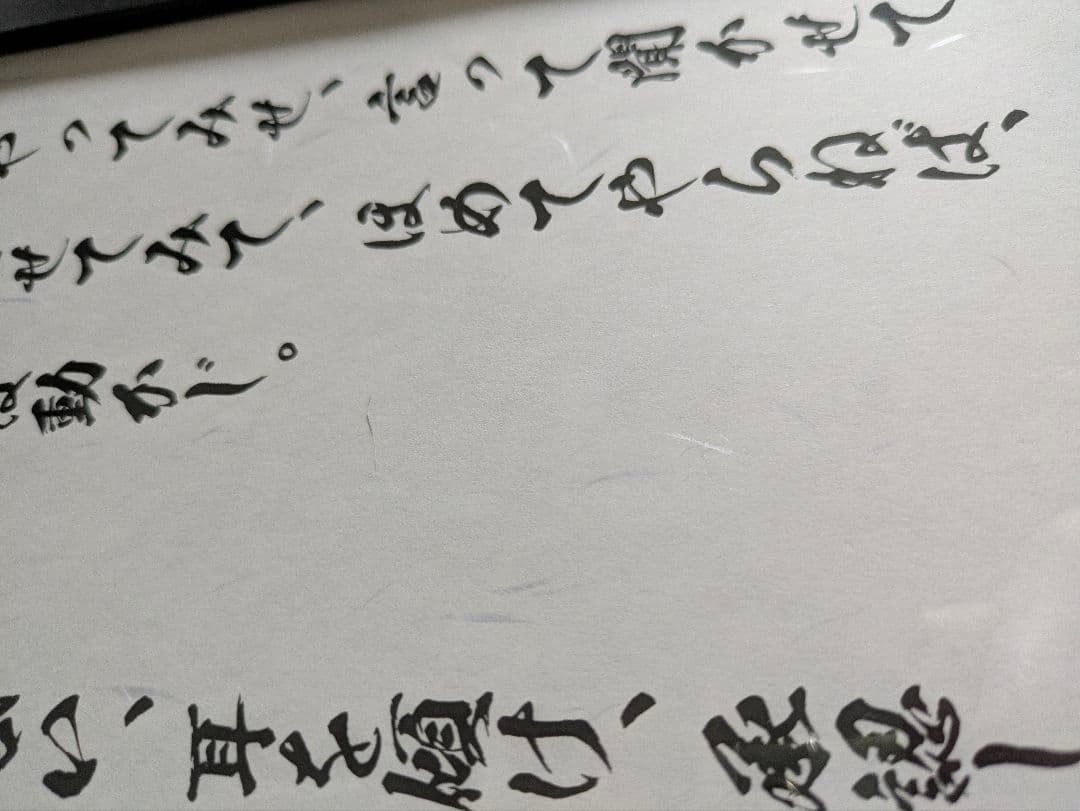 やってみせ、言って聞かせて
せてみて、ほめてやらねば、
は動かじ。
い、耳を傾け、承認し